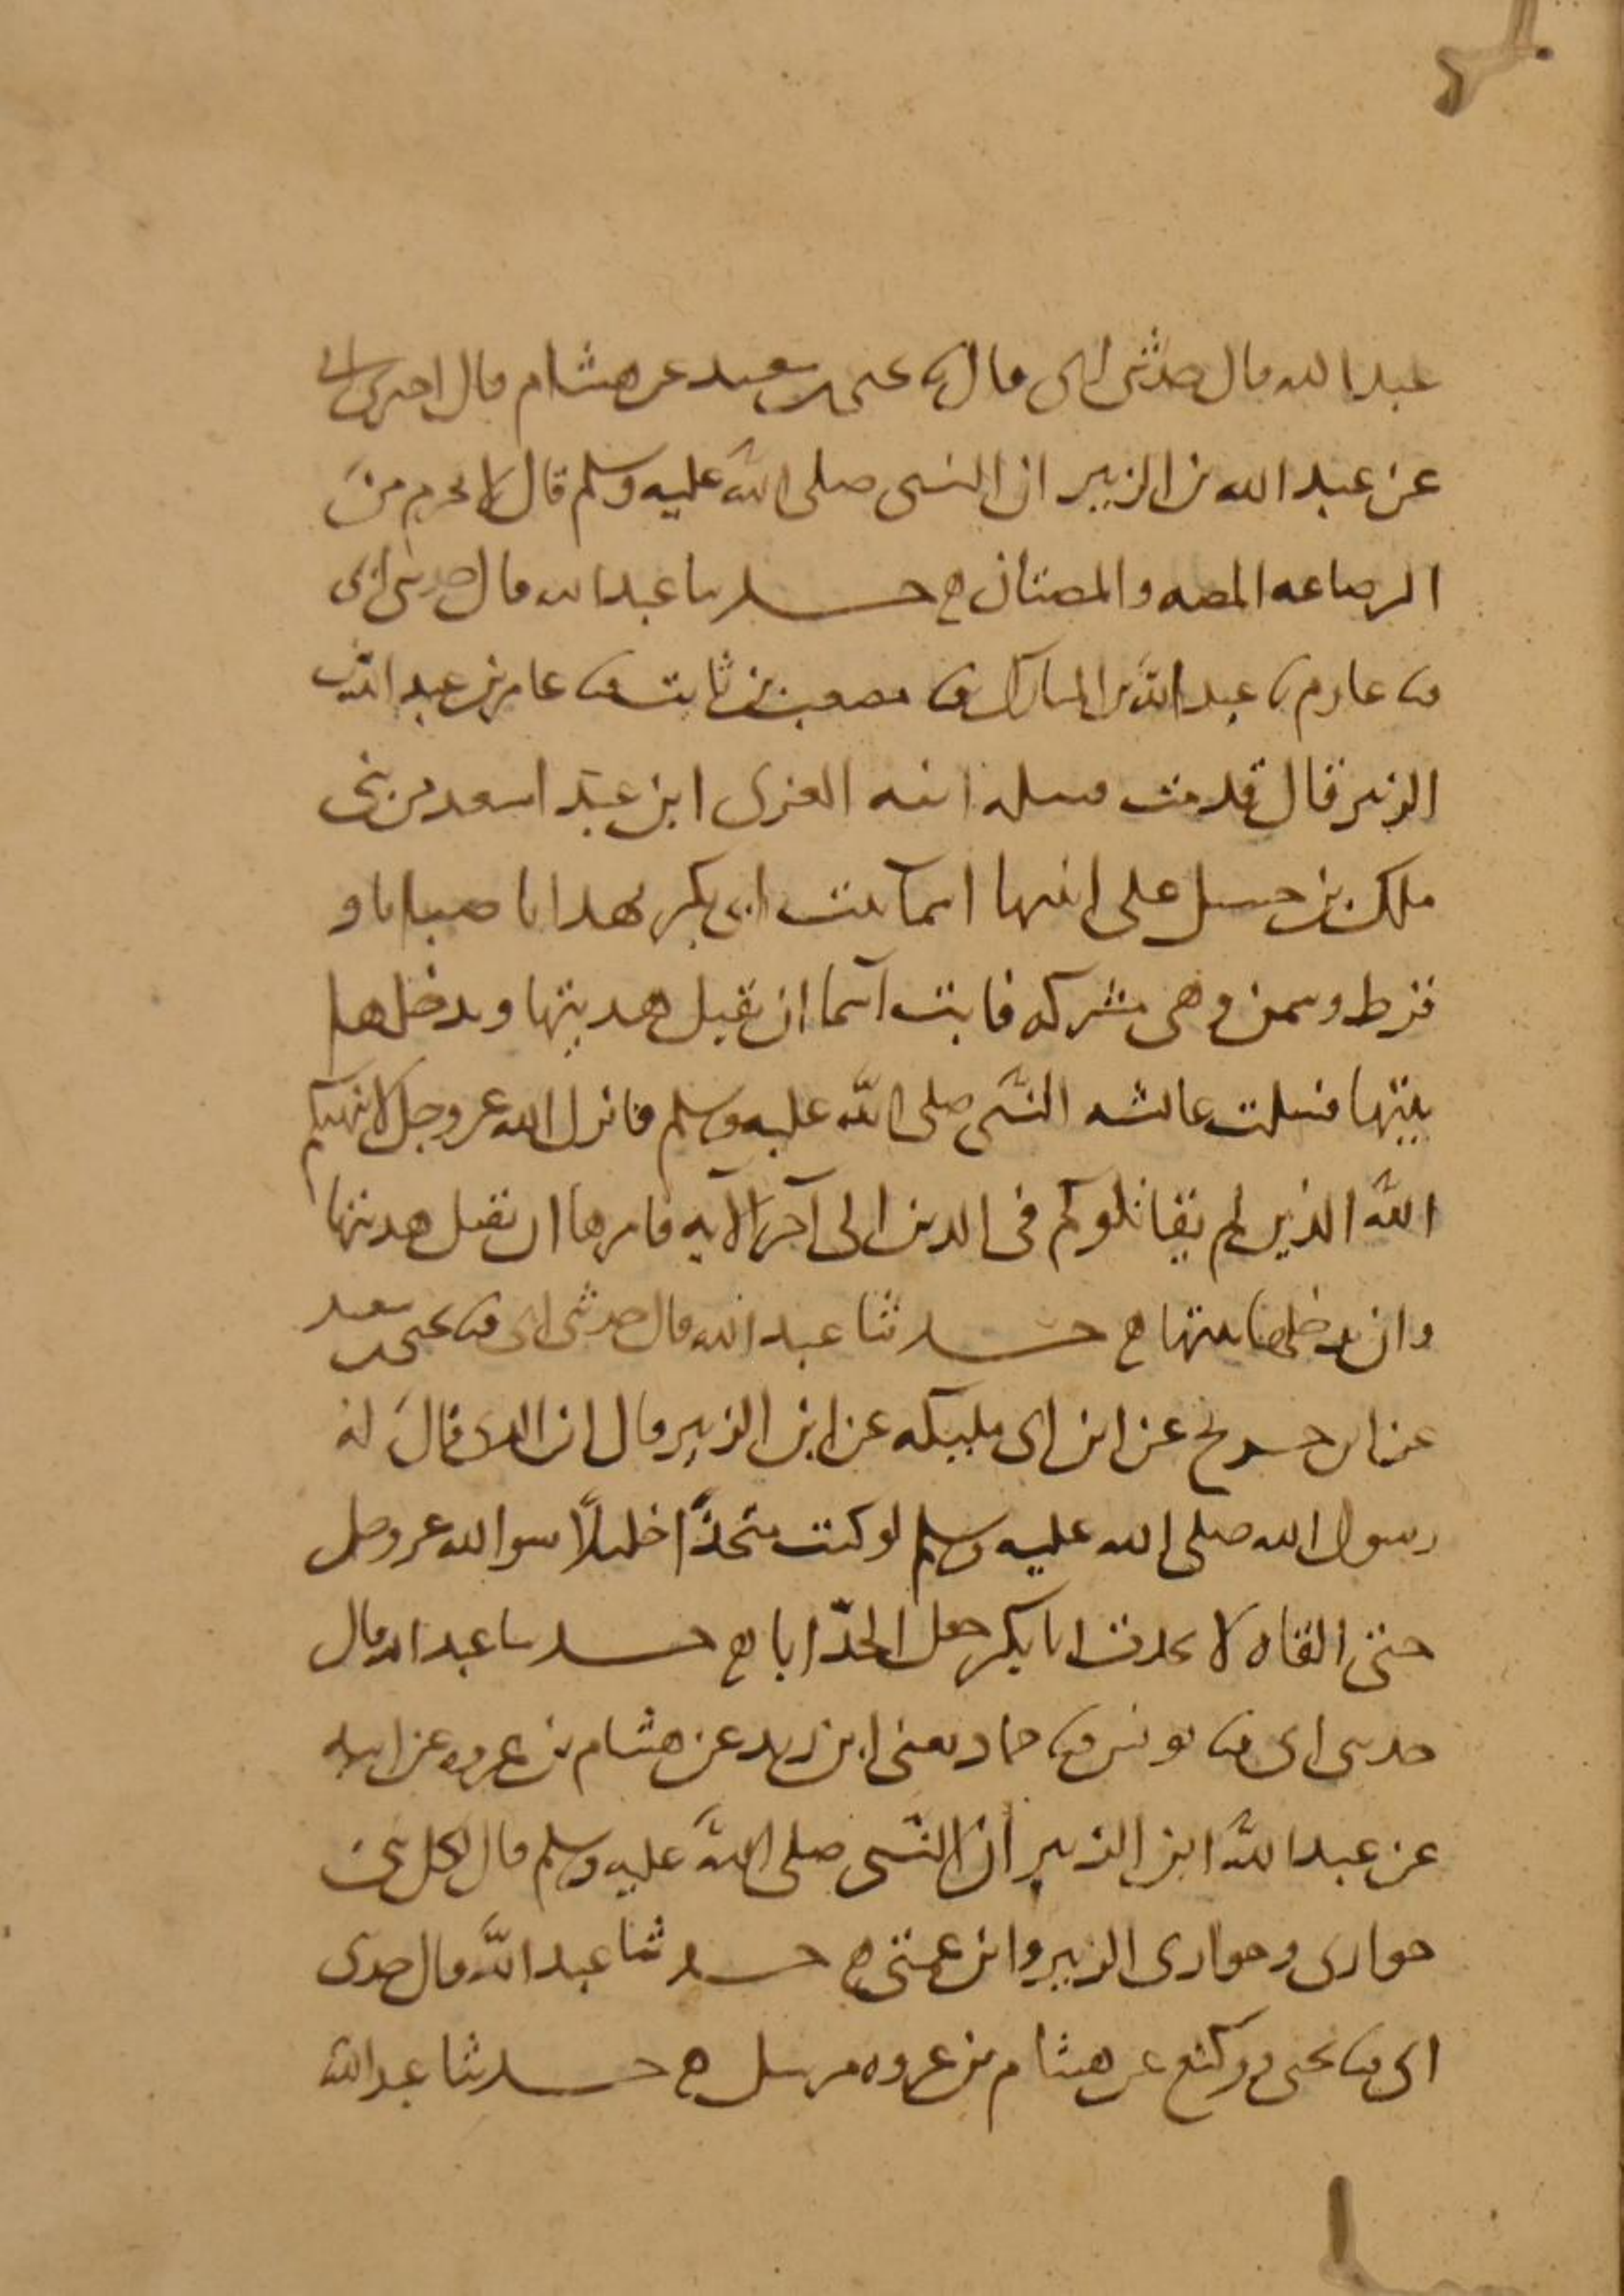 عبد الله قال حدثني ابي قال ثنا يحيى بن سعيد عن هشام قال اخبرني ابي
عن عبد الله بن الزبير ان النبي صلى الله عليه وسلم قال لا تحرم من
الرضاعه المصه والمصتان ه حدثنا عبد الله قال حدثني ابي
ثنا عارم ثنا عبد الله بن المبارك ثنا مصعب بن ثابت ثنا عامر بن عبد الله بن
الزبير قال قدمت قتيله ابنه العزى ابن عبد اسعد من بني
ملك بن حسل على ابنتها اسما بنت ابي بكر بهدايا ضبابا و
قرط وسمن وهي مشركه فابت اسما ان تقبل هديتها وتدخلها
بيتها فسلت عائشه النبي صلى الله عليه وسلم فانزل الله عز وجل لا ينهيكم
الله الذين لم يقاتلوكم في الدين الى آخر الآيه فامرها ان تقبل هديتها
وان تدخلها بيتها ه حدثنا عبد الله قال حدثني ابي ثنا يحيى بن سعيد
عن ابن جريج عن ابن ابي مليكه عن ابن الزبير قال ان الذي قال له
رسول الله صلى الله عليه وسلم لو كنت متخذًا خليلًا سوا الله عز وجل
حتى القاه لاتخذت ابا بكر جعل الجدّ ابا ه حدثنا عبد الله قال
حدثني ابي ثنا يونس ثنا حماد يعني ابن زيد عن هشام بن عروه عن ابيه
عن عبد الله ابن الزبير أن النبي صلى الله عليه وسلم قال لكل نبي
حواري وحواري الزبير وابن عمتي ه حدثنا عبد الله قال حدثني
ابي ثنا يحيى ووكيع عن هشام بن عروه مرسل ه حدثنا عبد الله